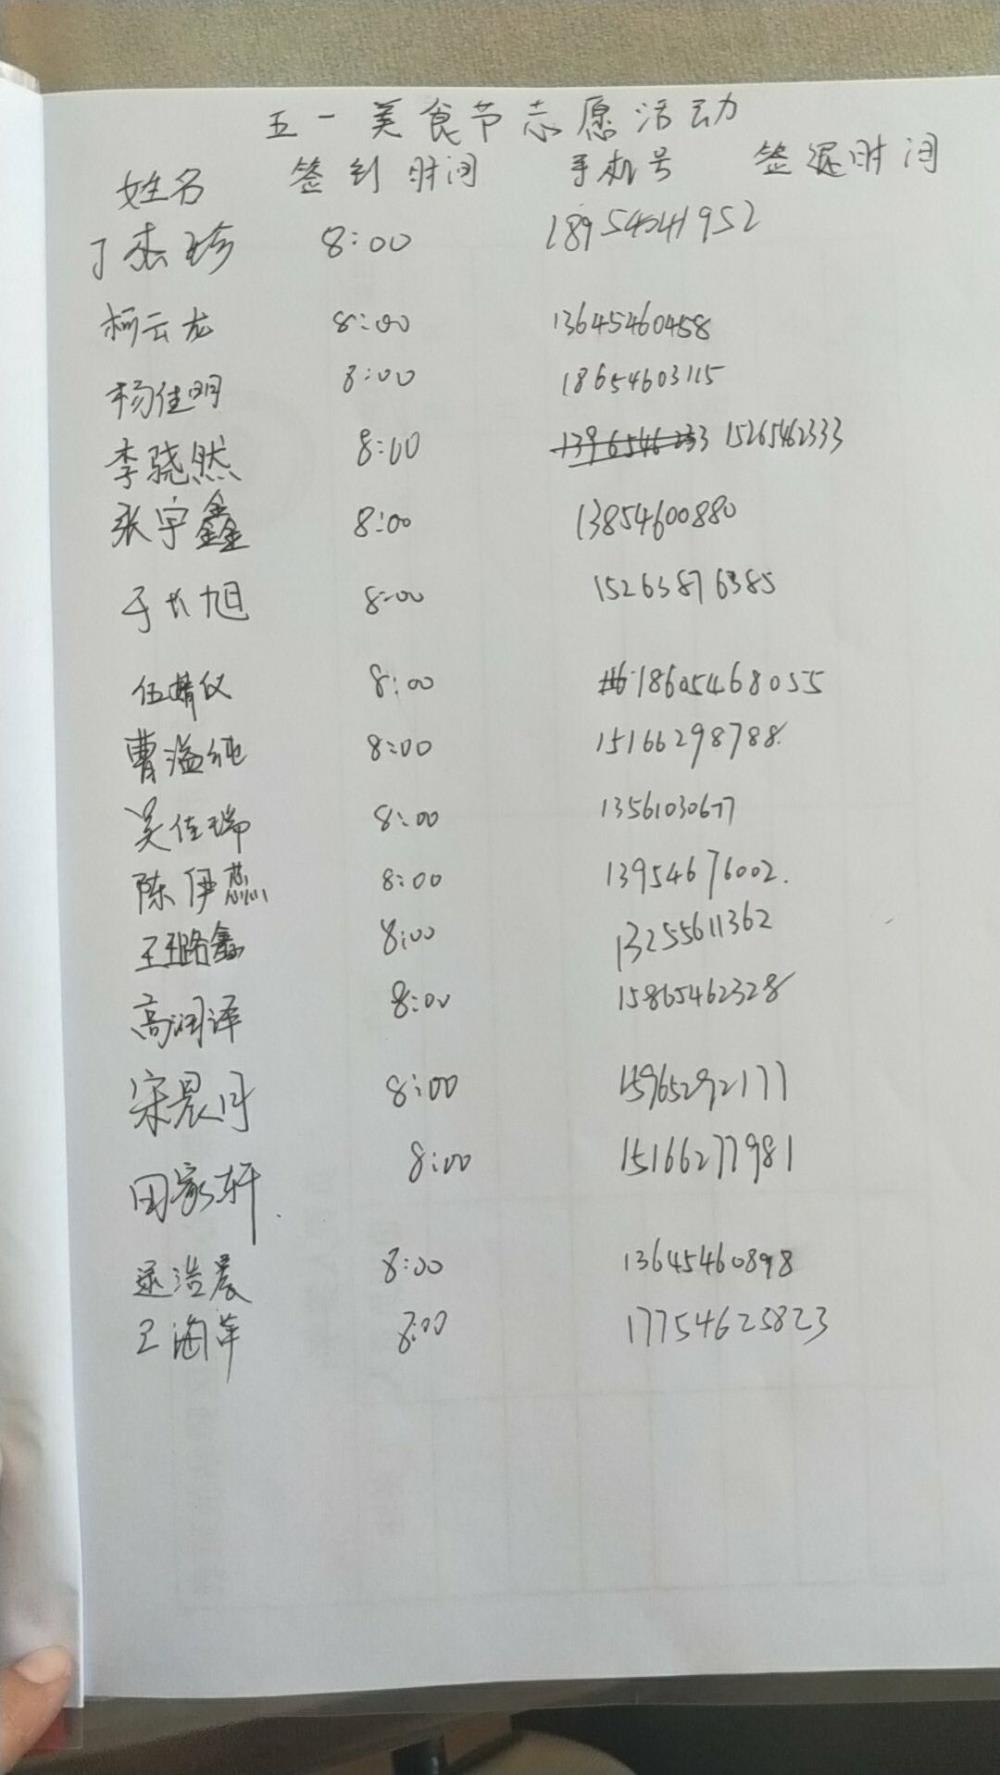 五一美食节志愿活动
姓名 签到时间 手机号 签退时间
丁杰珍 8:00 18954541952
柯云龙 8:00 13645460458
杨佳明 8:00 18654603115
李骁然 8:00 15265462333
张宇鑫 8:00 13854600880
于长旭 8:00 15263876385
伍婧仪 8:00 18605468055
曹溢纯 8:00 15166298788
吴佳瑞 8:00 13561030677
陈伊蕊 8:00 13954676002.
王璐鑫 8:00 13255611362
高润泽 8:00 15865462328
宋晨月 8:00 15965292177
田家轩. 8:00 15166277981
浩晨 8:00 13645460898
王海萍 8:00 17754625823